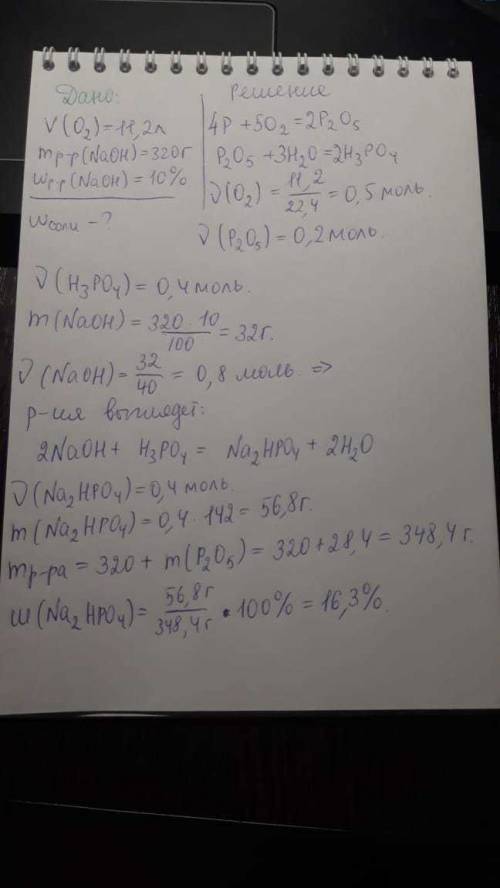 Дано:
V(O₂)=11,2л
mр-р(NaOH)=320г
wр-р(NaOH)=10%
wсоли-?
Решение
4P+5O₂=2P₂O₅
P₂O₅+3H₂O=2H₃PO₄
ν(O₂)=11,2/22,4=0,5 моль.
ν(P₂O₅)=0,2 моль.
ν(H₃PO₄)=0,4 моль.
m(NaOH)=320·10/100=32г.
ν(NaOH)=32/40=0,8 моль. =>
р-ия выглядет:
2NaOH+ H₃PO₄= Na₂HPO₄+2H₂O
ν(Na₂HPO₄)=0,4 моль.
m(Na₂HPO₄)=0,4·142=56,8г.
mр-ра=320+m(P₂O₅)=320+28,4=348,4г.
w(Na₂HPO₄)=56,8г/348,4г·100%=16,3%.